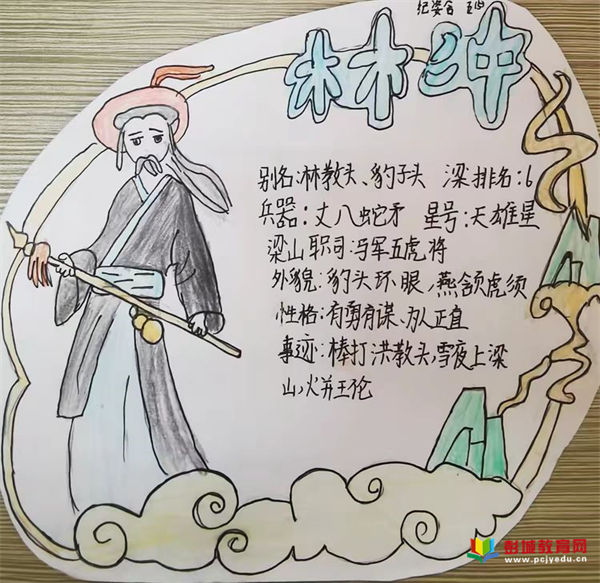 林冲
别名:林教头、豹子头 梁排名:6
兵器:丈八蛇矛 星号:天雄星
梁山职司:马军五虎将
外貌:豹头环眼,燕颔虎须
性格:有勇有谋、为人正直
事迹:棒打洪教头,雪夜上梁
山,火并王伦
彭城教育网
www.pcjyedu.cn